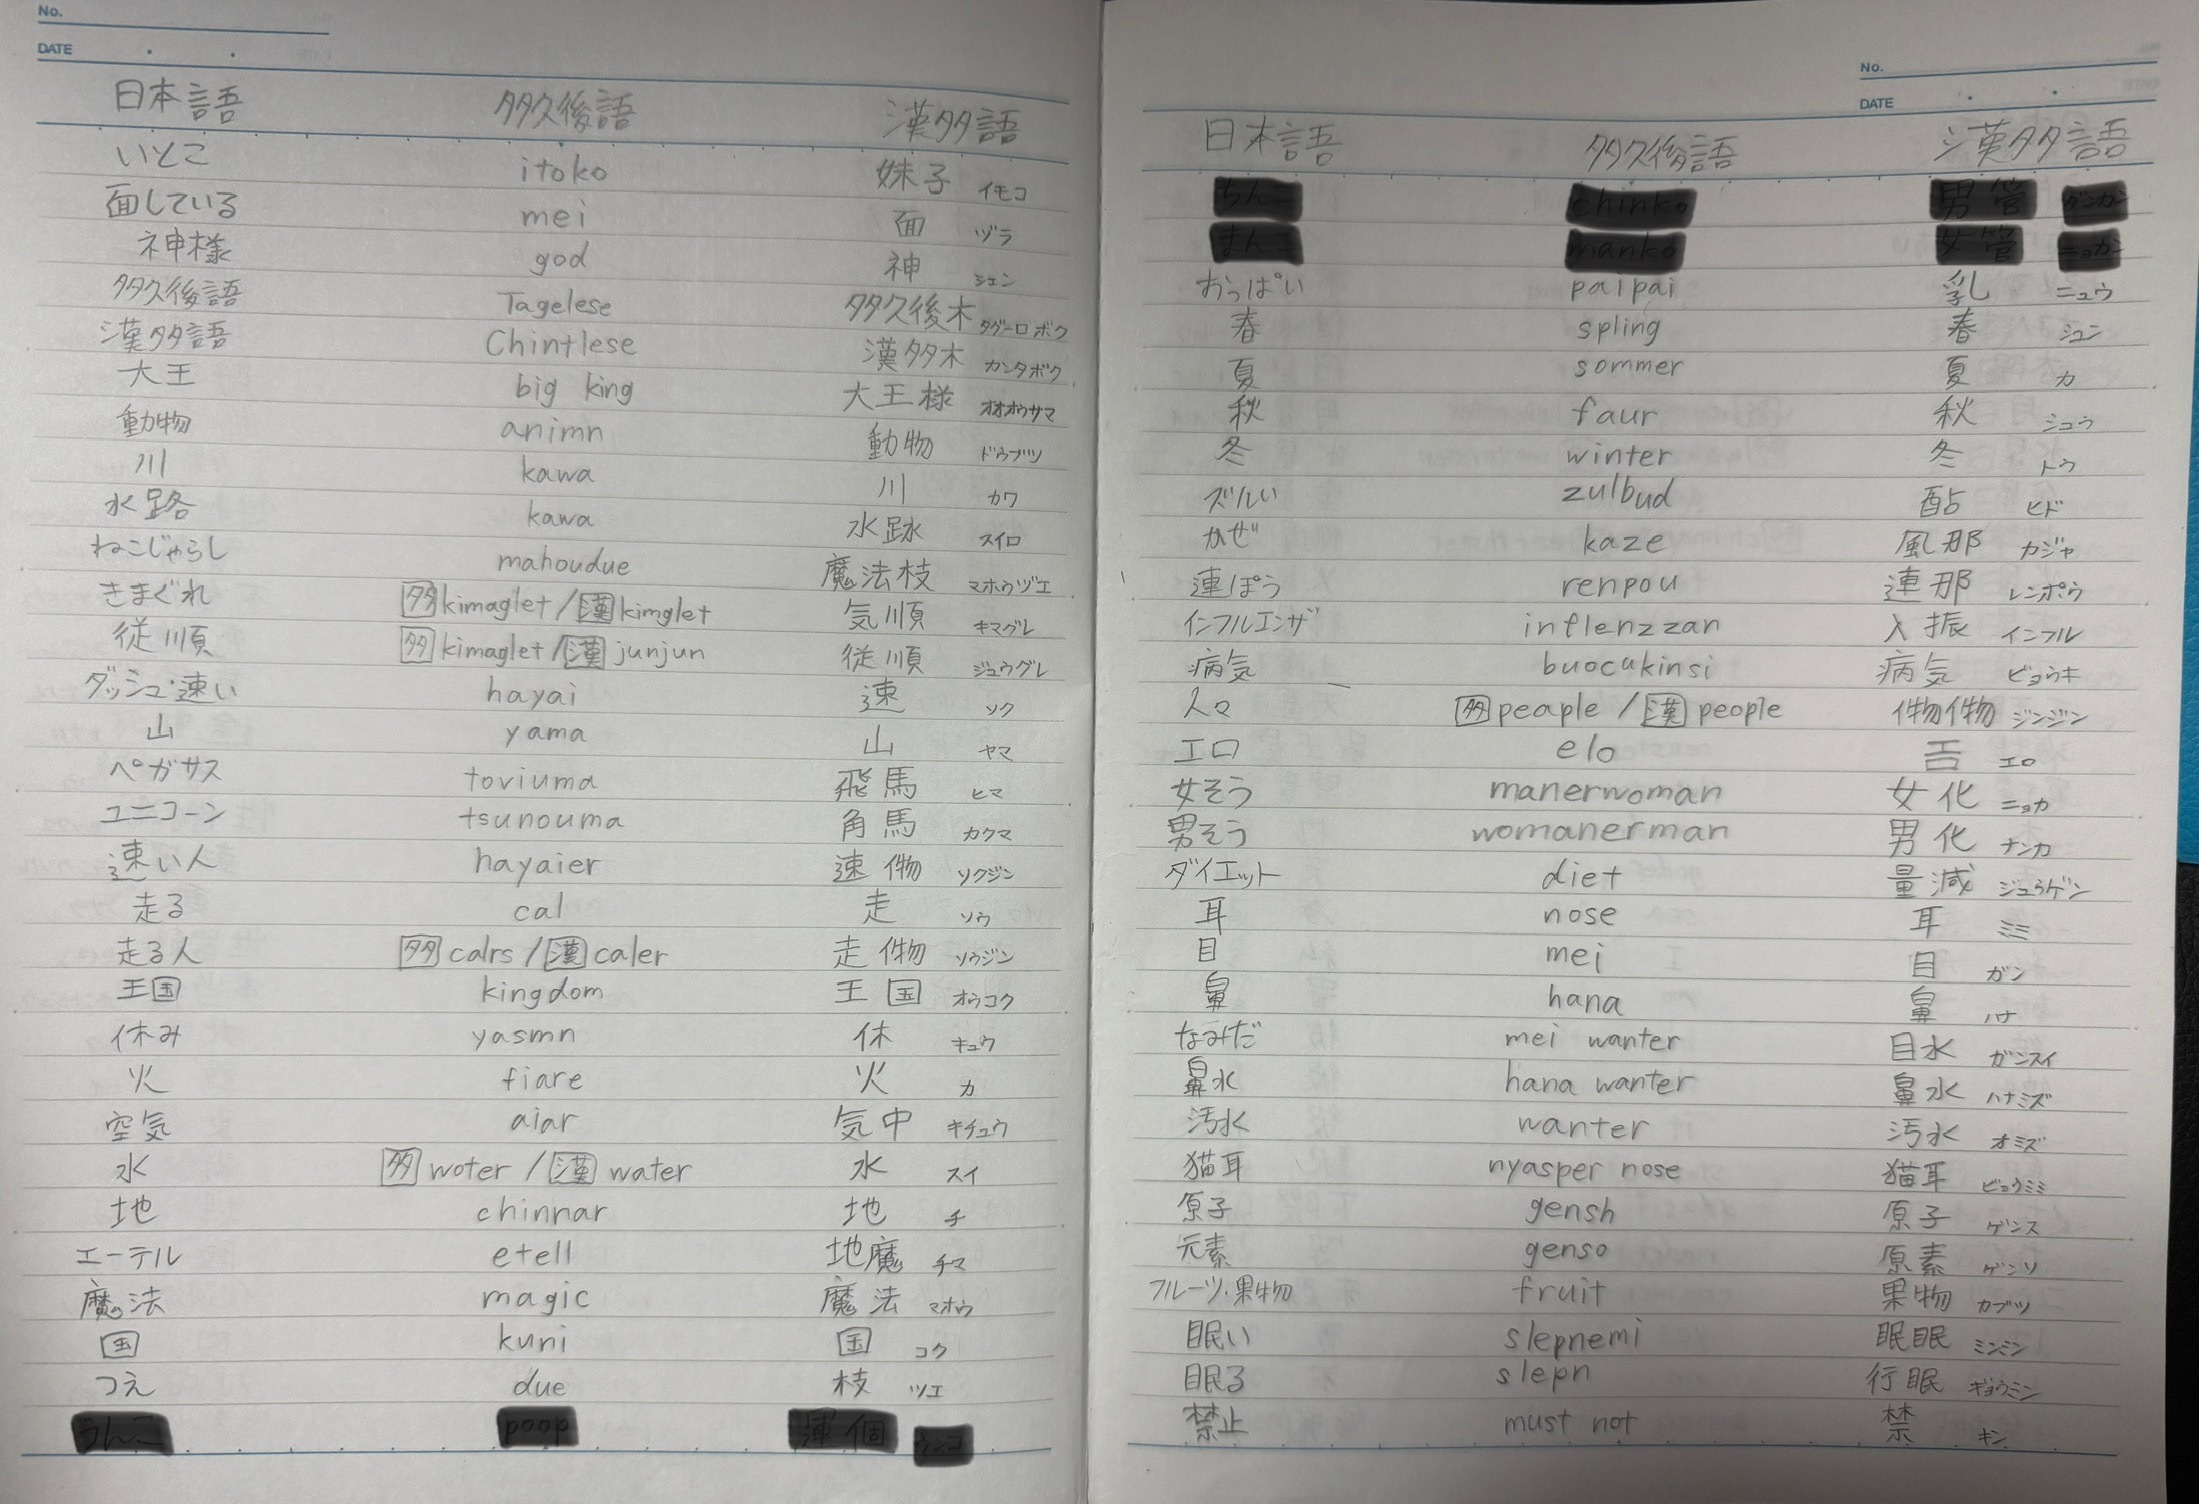 No.
DATE
日本語 多久後語 漢多語
いとこ itoko 妹子 イモコ
面している mei 面 ヅラ
神様 god 神 シェン
多久後語 Tagelese 多久後木 タグーロボク
漢多語 Chintlese 漢多木 カンタボク
大王 big king 大王様 オオオウサマ
動物 animn 動物 ドウブツ
川 kawa 川 カワ
水路 kawa 水跡 スイロ
ねこじゃらし mahoudue 魔法枝 マホウヅエ
きまぐれ 多 kimaglet / 漢 kimglet 気順 キマグレ
従順 多 kimaglet / 漢 junjun 従順 ジュウグレ
ダッシュ・速い hayai 速 ソク
山 yama 山 ヤマ
ペガサス toviuma 飛馬 ヒマ
ユニコーン tsunouma 角馬 カクマ
速い人 hayaier 速 ソクジン
走る cal 走 ソウ
走る人 多 calrs / 漢 caler 走 ソウジン
王国 kingdom 王国 オウコク
休み yasmn 休 キュウ
火 fiare 火 カ
空気 aiar 気中 キチュウ
水 多 woter / 漢 water 水 スイ
地 chinnar 地 チ
エーテル etell 地魔 チマ
魔法 magic 魔法 マホウ
国 kuni 国 コク
つえ due 枝 ツエ
うんこ poop 運個 ウンコ
No.
DATE
日本語 多久後語 漢多語
ちんこ chinko 男管 ダンカン
まんこ manko 女管 ニョカン
おっぱい paipai 乳 ニュウ
春 spling 春 シュン
夏 sommer 夏 カ
秋 faur 秋 シュウ
冬 winter 冬 トウ
ズルい zulbud ヒド
かぜ kaze 風那 カジャ
連ぽう renpou 連那 レンポウ
インフルエンザ inflenzzan 入振 インフル
病気 buocukinsi 病気 ビョウキ
人々 多 peaple / 漢 people ジンジン
エロ elo エロ
女そう manerwoman 女化 ニョカ
男そう womanerman 男化 ナンカ
ダイエット diet 量減 ジュウゲン
耳 nose 耳 ミミ
目 mei 目 ガン
鼻 hana 鼻 ハナ
なみだ mei wanter 目水 ガンスイ
鼻水 hana wanter 鼻水 ハナミズ
汚水 wanter 汚水 オミズ
猫耳 nyasper nose 猫耳 ビョウミミ
原子 gensh 原子 ゲンス
元素 genso 原素 ゲンソ
フルーツ・果物 fruit 果物 カブツ
眠い slepnemi 眠眠 ミンミン
眠る slepn 行眠 ギョウミン
禁止 must not 禁 キン